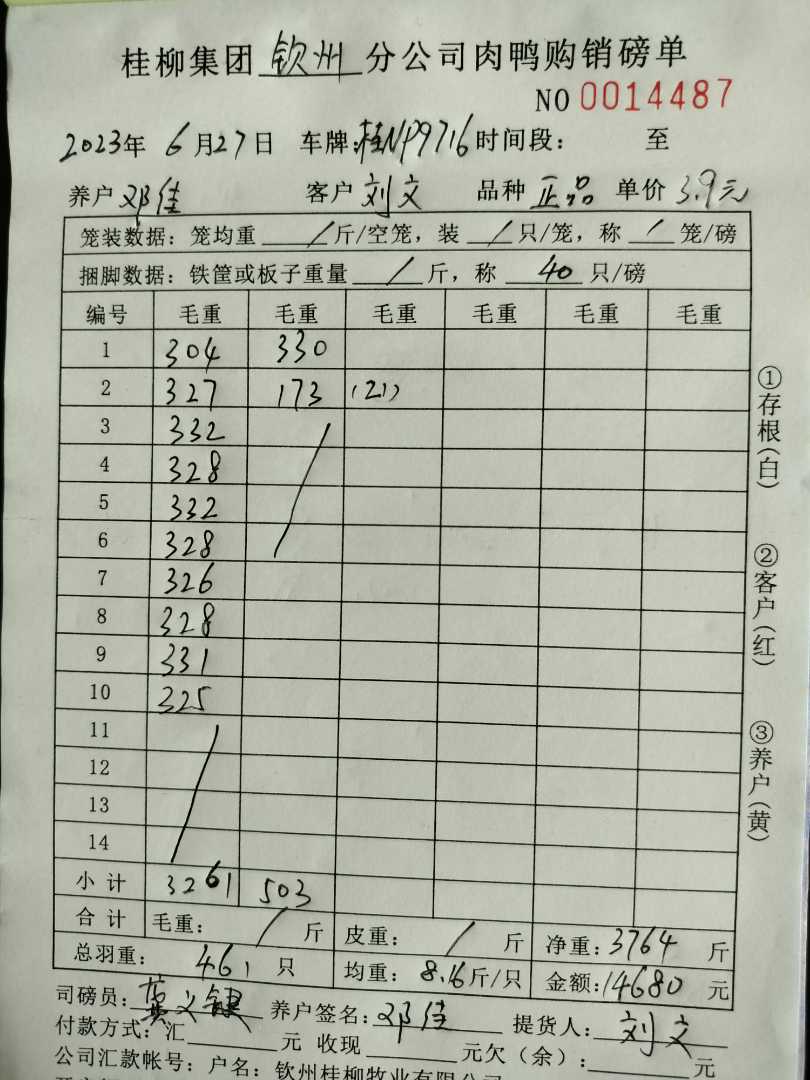 桂柳集团 钦州 分公司肉鸭购销磅单
NO 0014487
2023年 6月27日 车牌:桂NP9716 时间段: 至
养户 邓佳 客户 刘文 品种 正品 单价 3.9元
笼装数据: 笼均重 / 斤/空笼, 装 / 只/笼, 称 / 笼/磅
捆脚数据: 铁筐或板子重量 / 斤, 称 40 只/磅
编号 毛重 毛重 毛重 毛重 毛重 毛重
1 304 330
2 327 173 (21)
3 332
4 328
5 332
6 328
7 326
8 328
9 331
10 325
11
12
13
14
小计 3261 503
合计 毛重: / 斤 皮重: / 斤 净重: 3764 斤
总羽重: 461 只 均重: 8.16斤/只 金额: 14680 元
司磅员: 黄义银 养户签名: 邓佳 提货人: 刘文
付款方式: 汇 元 收现 元欠(余): 元
公司汇款帐号: 户名: 钦州桂柳牧业有限公司
①存根(白)
②客户(红)
③养户(黄)